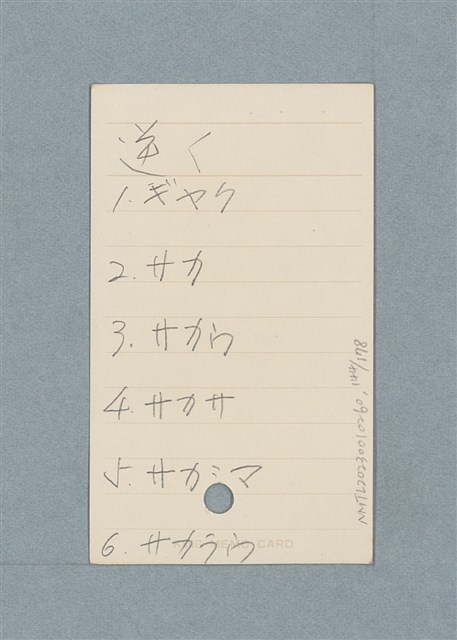 逆く
1. ギヤク
2. サカ
3. サカら
4. サカサ
5. サカシマ
6. サカラウ
MEMO CARD